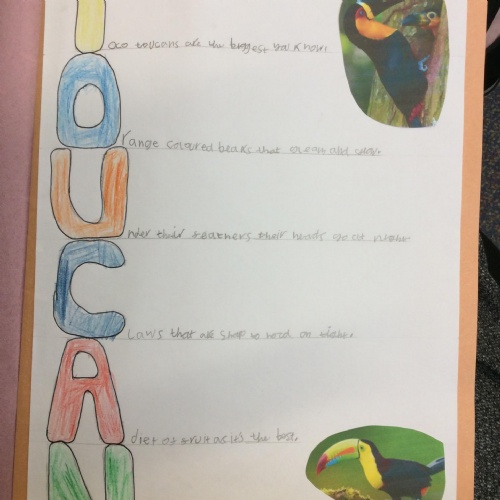 Toco toucans are the biggest you know!
Orange coloured beaks that are
Under their feathers their heads
Claws that are sharp to
A diet of fruit as it's the best.
N